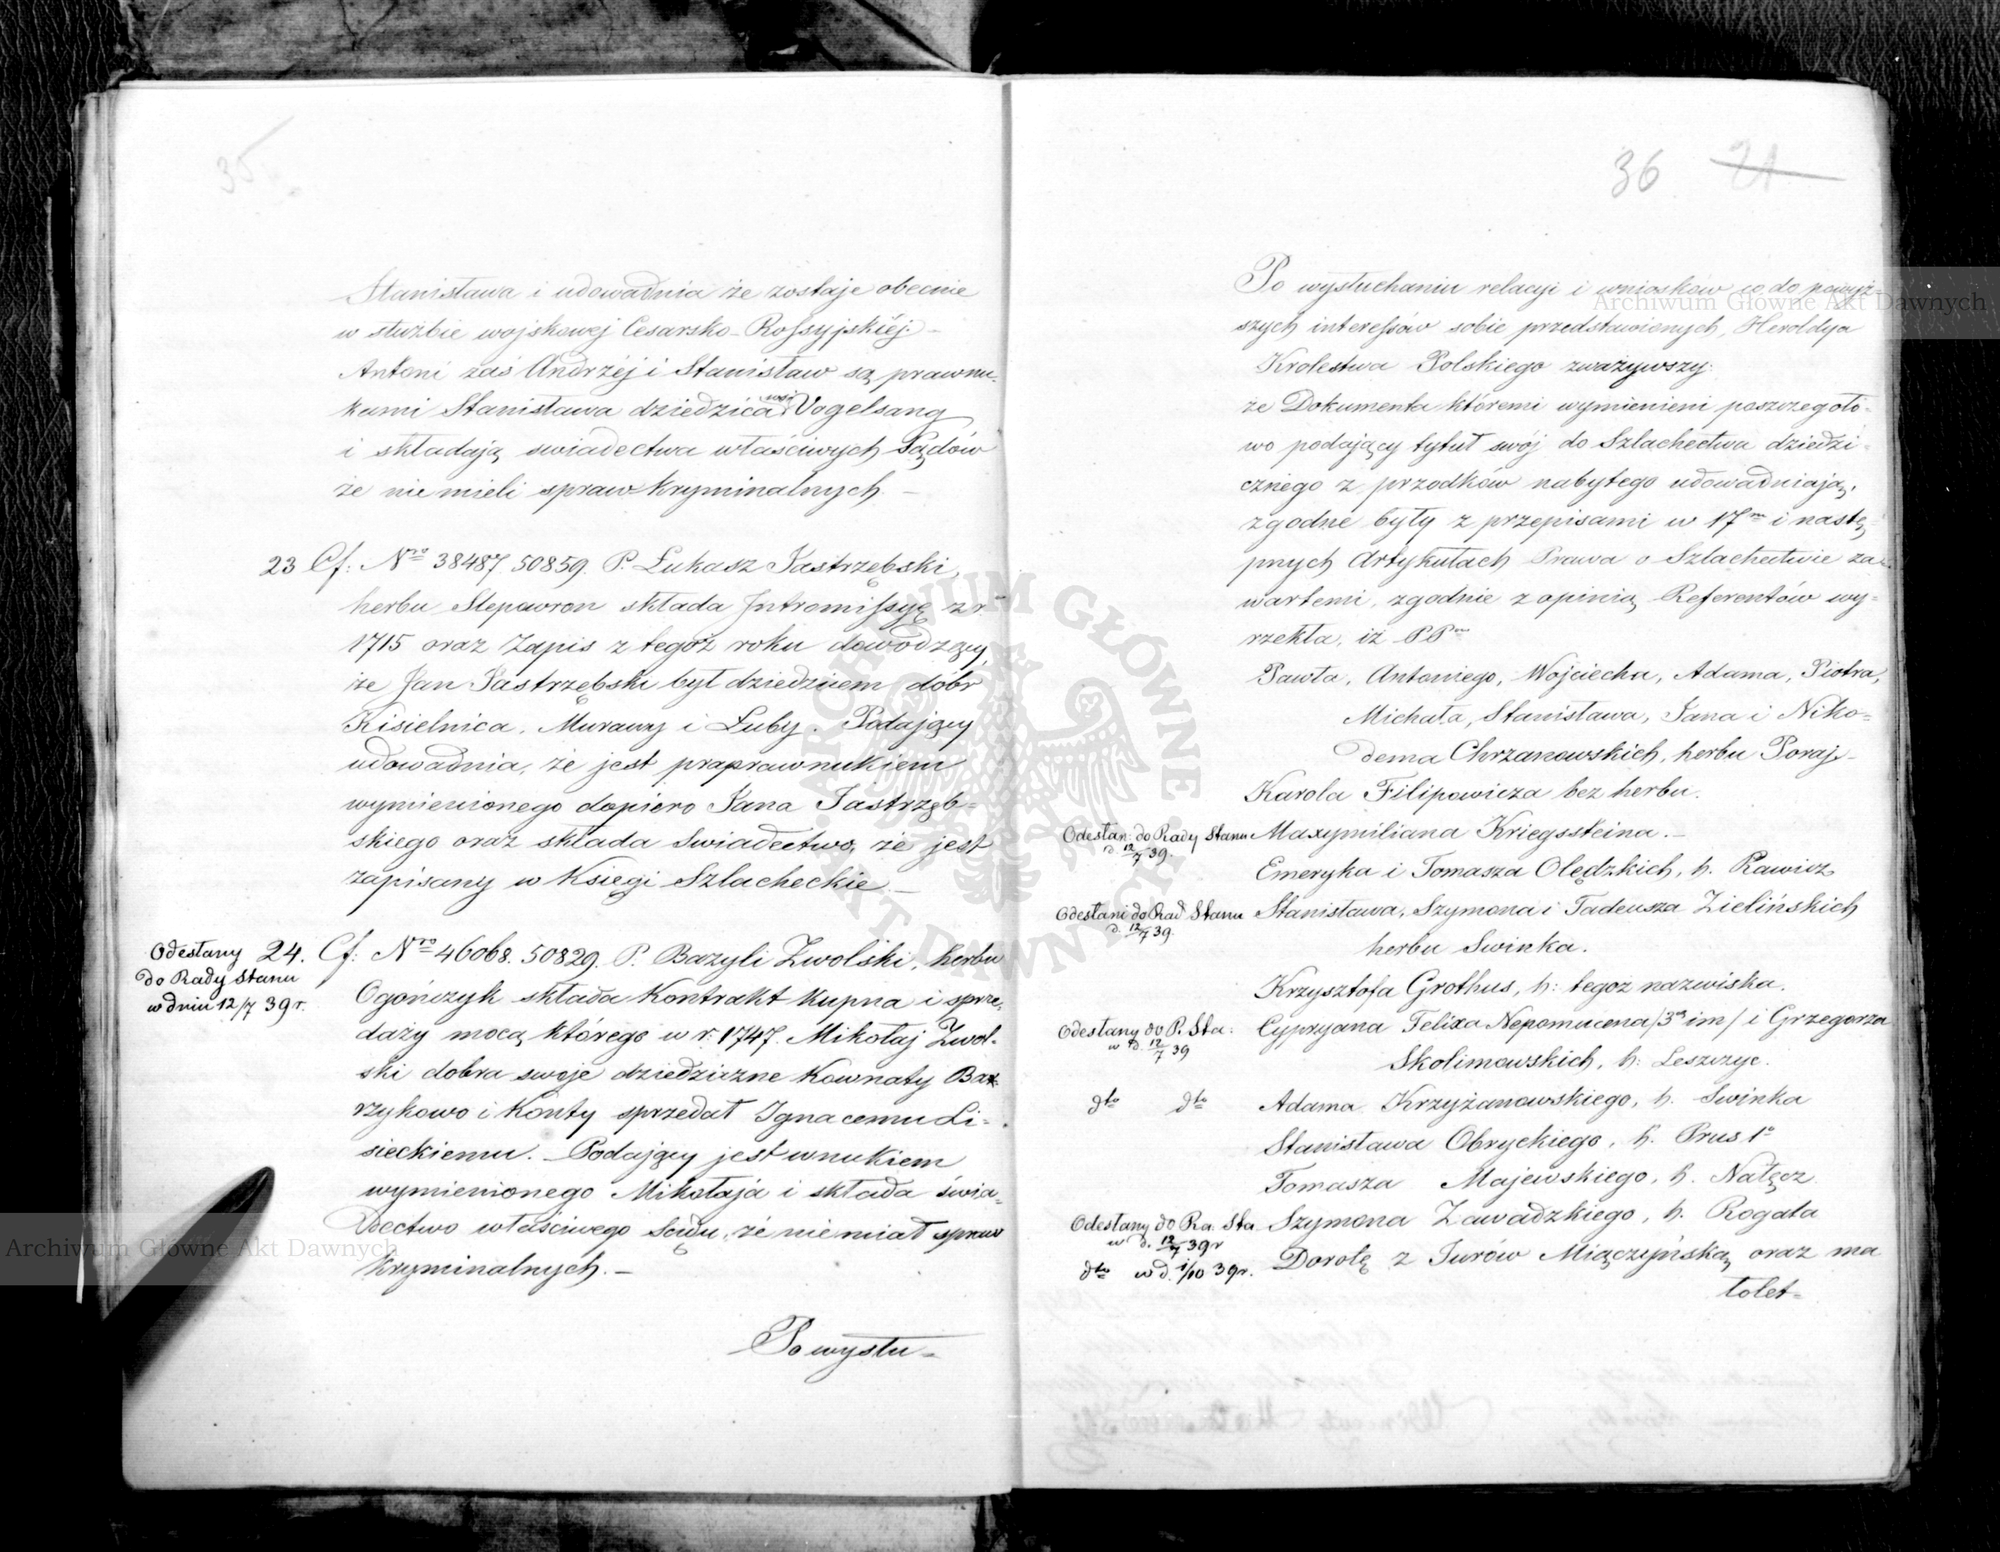 35
Stanisława i udowadnia że zostaje obecnie
w służbie wojskowej Cesarsko-Rossyjskiéj. –
Antoni zaś Andrzéj i Stanisław są prawnu-
kami Stanisława dziedzica wsi Vogelsang
i składają swiadectwa właściwych Sądów
że nie mieli spraw kryminalnych. –
23 Cf: Nro 38487 50859. P. Łukasz Jastrzębski,
herbu Slepowron składa Intromissyę z r.
1715 oraz Zapis z tegoż roku dowodzący,
że Jan Jastrzębski był dziedzicem dóbr
Kisielnica, Murawy i Luby. Podający
udowadnia, że jest praprawnukiem
wymienionego dopiero Jana Jastrzęb-
skiego oraz składa Swiadectwo, że jest
zapisany w Księgi Szlacheckie. –
Odesłany
do Rady Stanu
w dniu 12/7 39 r.
24. Cf: Nro 46068. 50829. P. Bazyli Zwolski, herbu
Ogończyk składa Kontrakt kupna i sprze-
daży mocą którego w r: 1747. Mikołaj Zwol-
ski dobra swoje dziedziczne Kownaty Ba-
rzykowo i Konty sprzedał Ignacemu Li-
sieckiemu. – Podający jest wnukiem
wymienionego Mikołaja i składa świa-
dectwo właściwego Sądu, że nie miał spraw
kryminalnych. –
Po wysłu-
36 21
Po wysłuchaniu relacyi i wniosków co do powyż-
szych interessów sobie przedstawionych, Heroldya
Krolestwa Polskiego zważywszy:
że Dokumenta któremi wymienieni poszczegoło-
wo podający tytuł swój do Szlachectwa dziedzi-
cznego z przodków nabytego udowadniają,
zgodne były z przepisami w 17m i nastę-
pnych Artykułach Prawa o Szlachectwie za-
wartemi, zgodnie z opinią Referentów wy-
rzekła, iż PPm
Pawła, Antoniego, Wojciecha, Adama, Piotra,
Michała, Stanisława, Jana i Niko-
dema Chrzanowskich, herbu Poraj. –
Karola Filipowicza bez herbu.
Odesłan: do Rady Stanu
d. 12/7 39.
Maxymiliana Kriegssteina. –
Emeryka i Tomasza Olędzkich, h. Rawicz
Odesłani do Rad Stanu
d. 12/7 39.
Stanisława, Szymona i Tadeusza Zielińskich
herbu Swinka.
Krzysztofa Grothus, h: tegoż nazwiska.
Odesłany do P. Sta:
w d. 12/7 39
Cypryana Felixa Nepomucena /3ch im/ i Grzegorza
Skolimowskich, h: Leszczyc.
dto dto
Adama Krzyżanowskiego, h. Swinka
Stanisława Obryckiego, h. Prus 1o
Tomasza Majewskiego, h. Nałęcz.
Odesłany do Ra. Sta.
w d. 12/7 39 r
Szymona Zawadzkiego, h. Rogala
dto w d. 1/10 39 r.
Dorotę z Jurów Miączyńską oraz ma
łolet-
Archiwum Główne Akt Dawnych
Archiwum Główne Akt Dawnych
ARCHIWUM GŁÓWNE AKT DAWNYCH